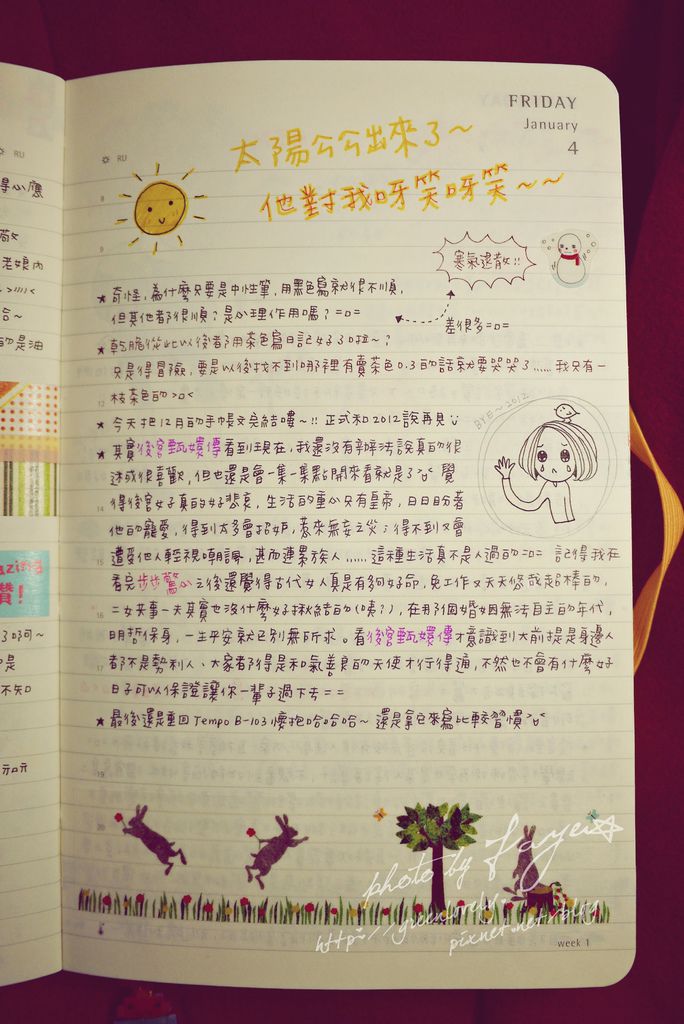 FRIDAY
January
4
RU
RU
太陽公公出來了~
他對我呀笑呀笑~~
寒氣退散!!
差很多=口=
★奇怪,為什麼只要是中性筆,用黑色寫就很不順,
但其他都很順?是心理作用嗎?=口=
★乾脆從此以後者都用茶色寫日記好了啦~?
只是得冒險,要是以後找不到哪裡有賣茶色0.3的話就要哭哭了......我只有一
枝茶色的>口<
★今天把12月的手帳文完結嘍~!!正式和2012說再見
BYE~2012!
★其實後宮甄嬛傳看到現在,我還沒有辦法說真的很
迷或很喜歡,但也還是會一集一集點開來看就是了 覺
得後宮女子真的好悲哀,生活的重心只有皇帝,日日盼著
他的寵愛,得到太多會招妒,惹來無妄之災;得不到又會
遭受他人輕視嘲諷,甚而連累族人......這種生活真不是人過的=口= 記得我在
看完步步驚心之後還覺得古代女人真是有夠好命,免工作又天天悠哉超棒的,
二女共事一夫其實也沒什麼好糾結的(咦?),在那個婚姻無法自主的年代,
明哲保身,一生平安就已別無所求。看後宮甄嬛傳才意識到大前提是身邊人
都不是勢利人、大家都得是和氣善良的天使才行得通,不然也不會有什麼好
日子可以保證讓你一輩子過下去==
★最後還是重回Tempo B-103懷抱哈哈哈~還是拿它來寫比較習慣
8
9
12
14
15
16
17
19
20
得心應
老娘內
的是油
azing
讚!
了啊~
不知
photo by Faye
pixnet.net/blog
week 1